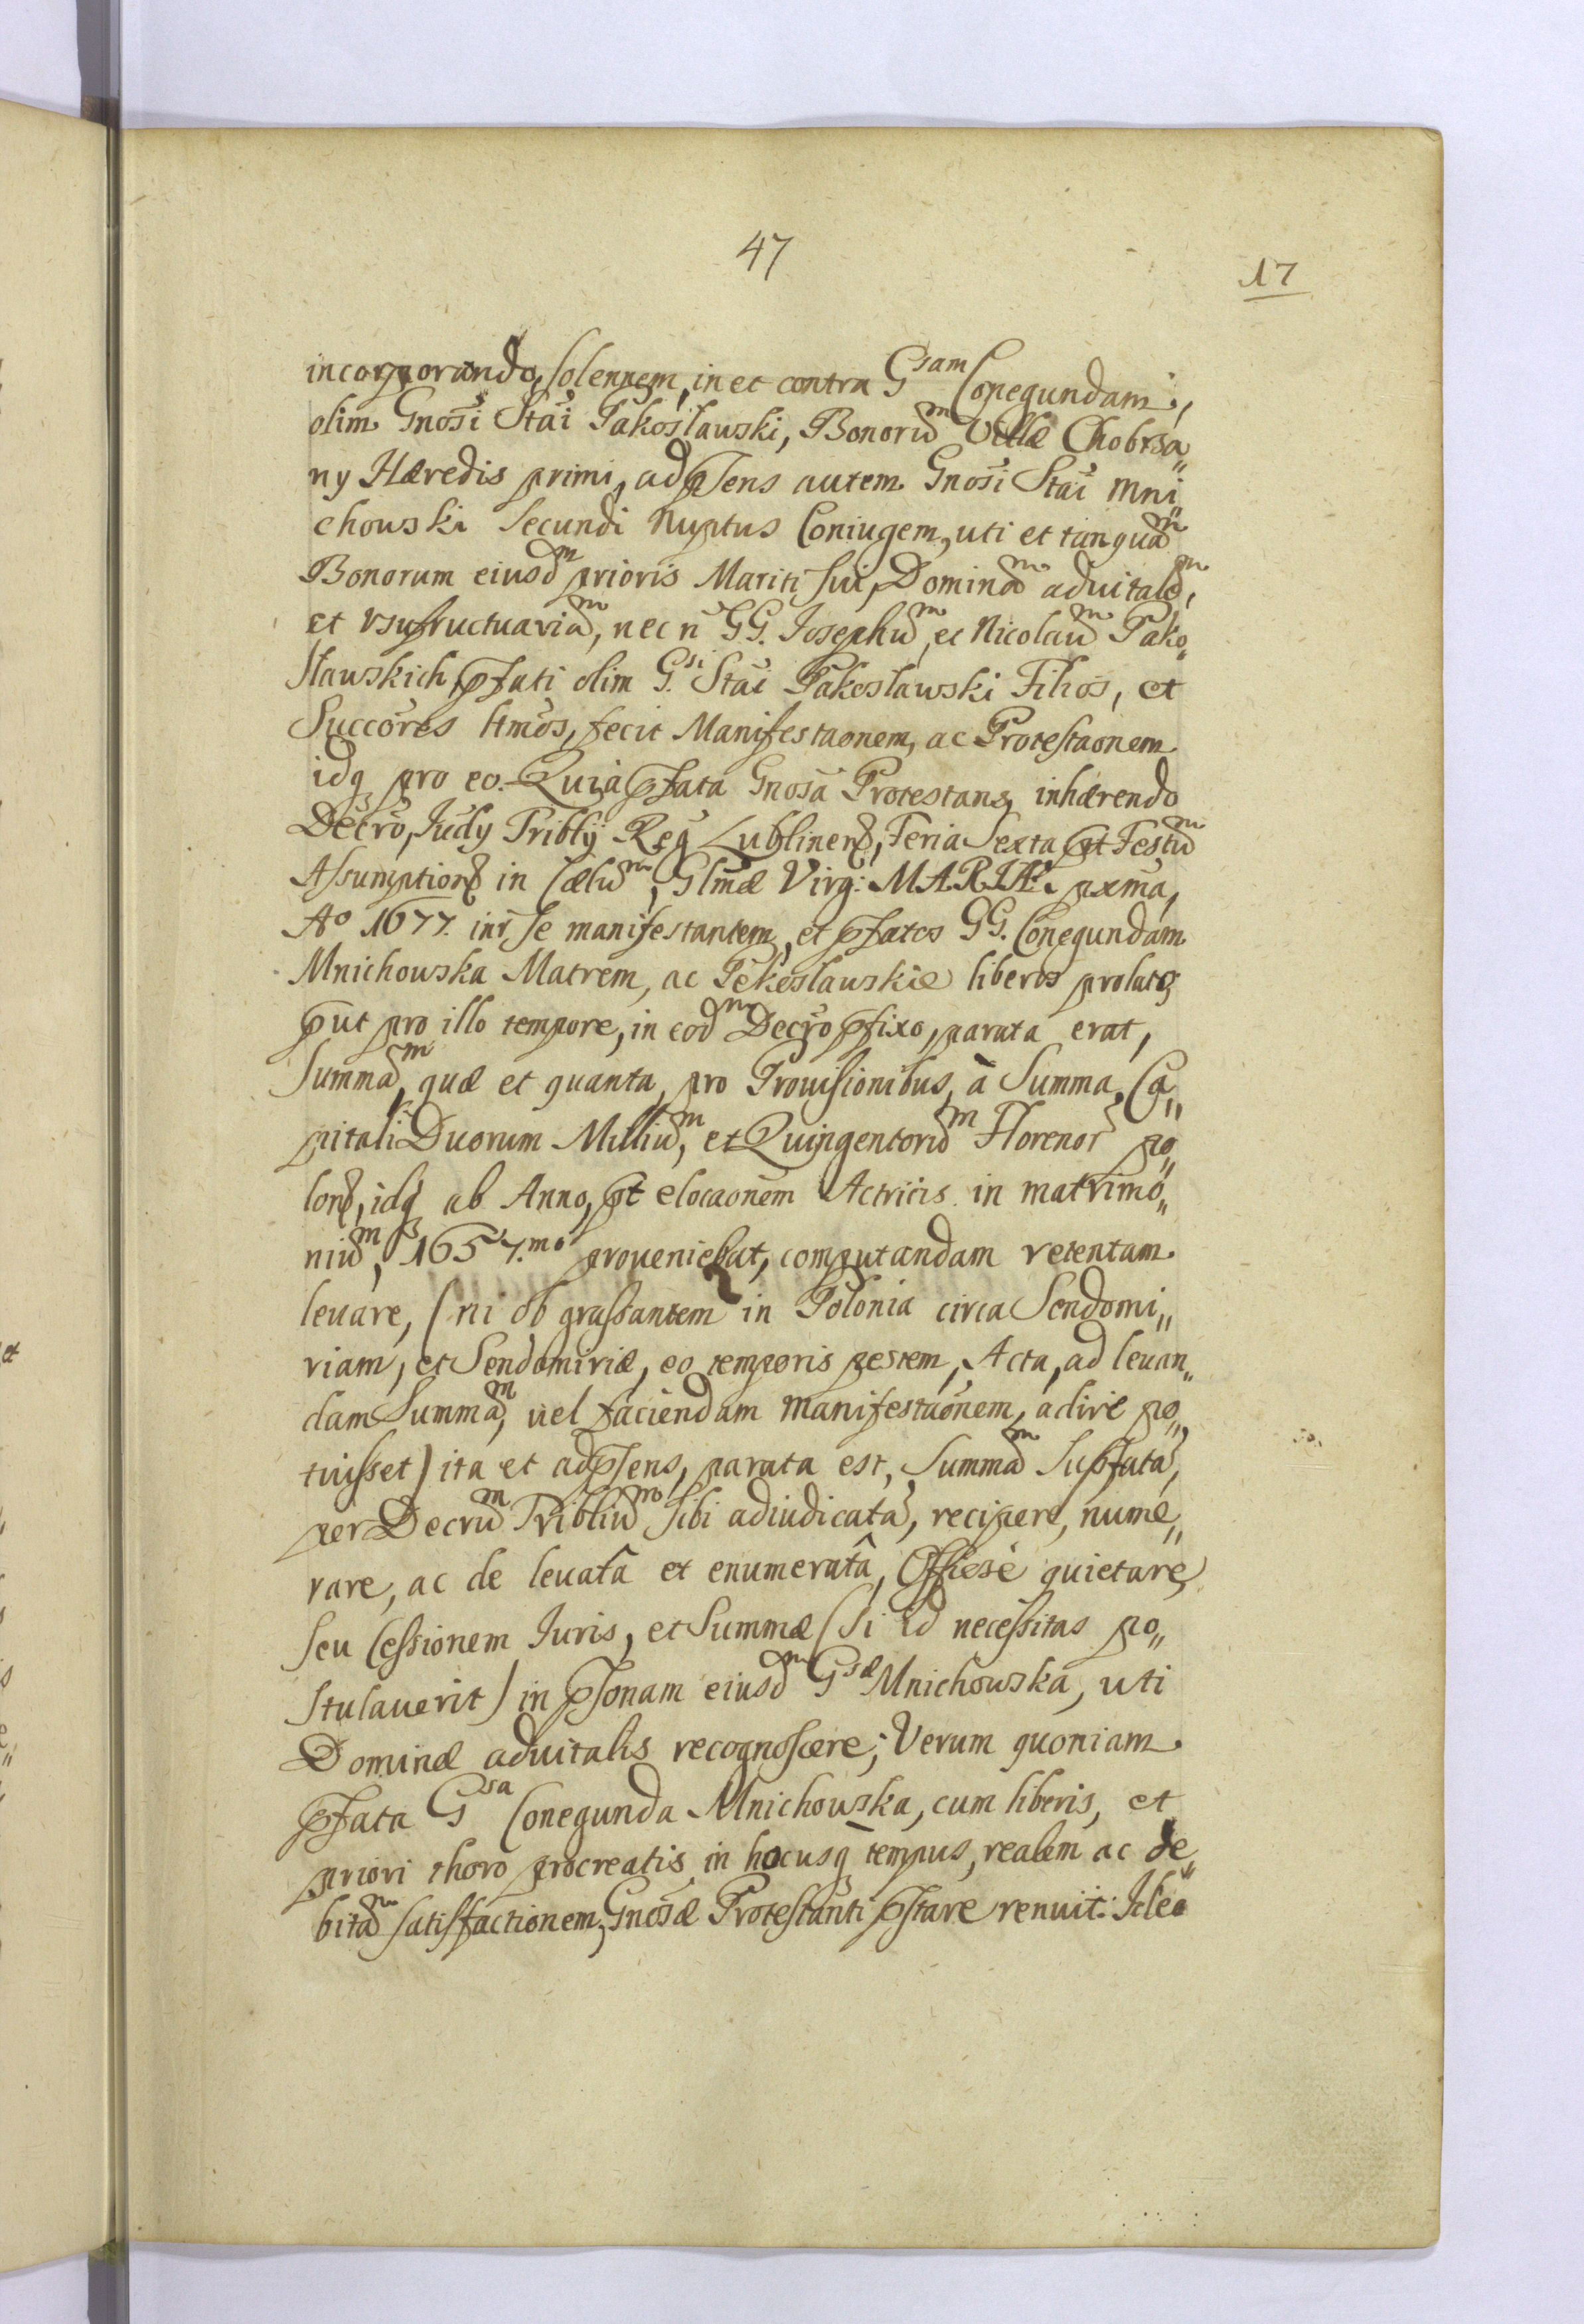 47
17
incorporando, solennem, in et contra Gsam Conegundam,
olim Gnosi Stai Pakosławski, Bonorum Villæ Chobrza„
ny Hæredis primi, ad pſens autem Gnosi Stai Mni„
chowski secundi Nuptus Coniugem, uti et tanquam
Bonorum eiusdm prioris Mariti sui, Dominam aduitalem,
et vsufructuariam, nec n̄ GG. Josephum, et Nicolaum Pako„
sławskich, pfati olim G.si Stai Pakosławski Filios, et
Succores ltmos, fecit Manifestaonem, ac Protestaonem
idq pro eo. Quia pfata Gnosa Protestans, inhærendo
Decro, Judy Triblij Reg Lublinens, Feria Sexta pt Festum
Assumptions in Cælum, Glmæ Virg: MARIÆ pxma,
Ao 1677. inr se manifestantem, et pfatos GG. Conegundam
Mnichowska Matrem, ac Pekosławskie liberos prolato,
put pro illo tempore, in eodm Decro pfixo, parata erat,
Summam, quæ et quanta, pro Prouisionibus, à Summa, Ca„
pitali Duorum Millium, et Quingentorum Florenor po„
lons, idq ab Anno, pt elocaonem Actricis in matrimo„
nium, 1657.mo proueniebat, computandam retentam
leuare, (ni ob grassantem in Polonia circa Sendomi„
riam, et Sendomiriæ, eo temporis pestem, Acta, ad leuan„
dam Summam, uel faciendam manifestaonem, adire po„
tuisset) ita et ad pſens, parata est, Summam supfata,
per Decrum Triblium sibi adiudicata, recipere, nume„
rare, ac de leuatâ et enumeratâ, Offiose quietare,
seu Cessionem Juris, et Summæ (si id necessitas po„
stulauerit) in psonam eiusdm Gsæ Mnichowska, uti
Dominæ aduitalis recognoscere; Verum quoniam
pfata Gsa Conegunda Mnichowska, cum liberis, et
priori thoro procreatis, in hocusq tempus, realem ac de„
bitam satisfactionem, Gnosæ Protestanti pstare renuit: Ideo